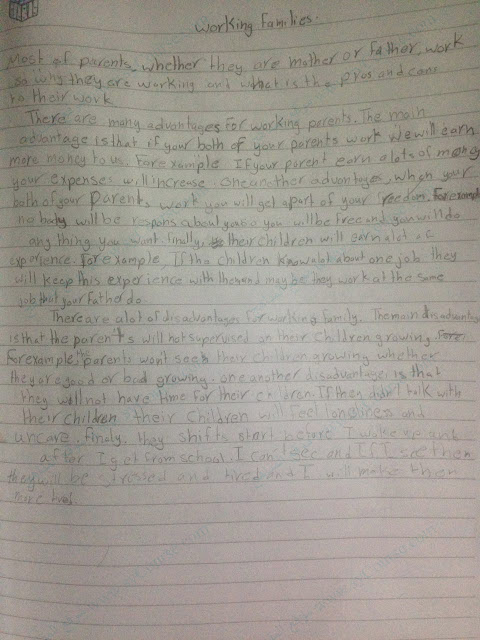 Working Families.
Most of parents, whether they are mother or Father, work
so why they are working and what is the pros and cons
to their work.
There are many advantages for working parents. The main
advantage is that if your both of your parents work we will earn
more money to us. For example If your parent earn a lots of money
your expenses will increase. One another advantages, when your
both of your parents work you will get a part of your freedom. For example
no body will be respons about you so you will be free and you will do
any thing you want. finally, their children will earn a lot of
experience. For example, If the children know alot about one job they
will keep this experience with them and may be they work at the same
job that your father do.
There are a lot of disadvantages for working family. The main disadvantage
is that the parents will not supervised on their children growing.
For example, the parents won't see their children growing whether
they or a good or bad growing. one another disadvantage is that
they will not have time for their children. If they didn't talk with
their children their children will feel loneliness and
uncare. finaly, they shifts start before I wake up and
after I get from school. I can't see and If I see them
they will be stressed and tired and I will make them
more tired.